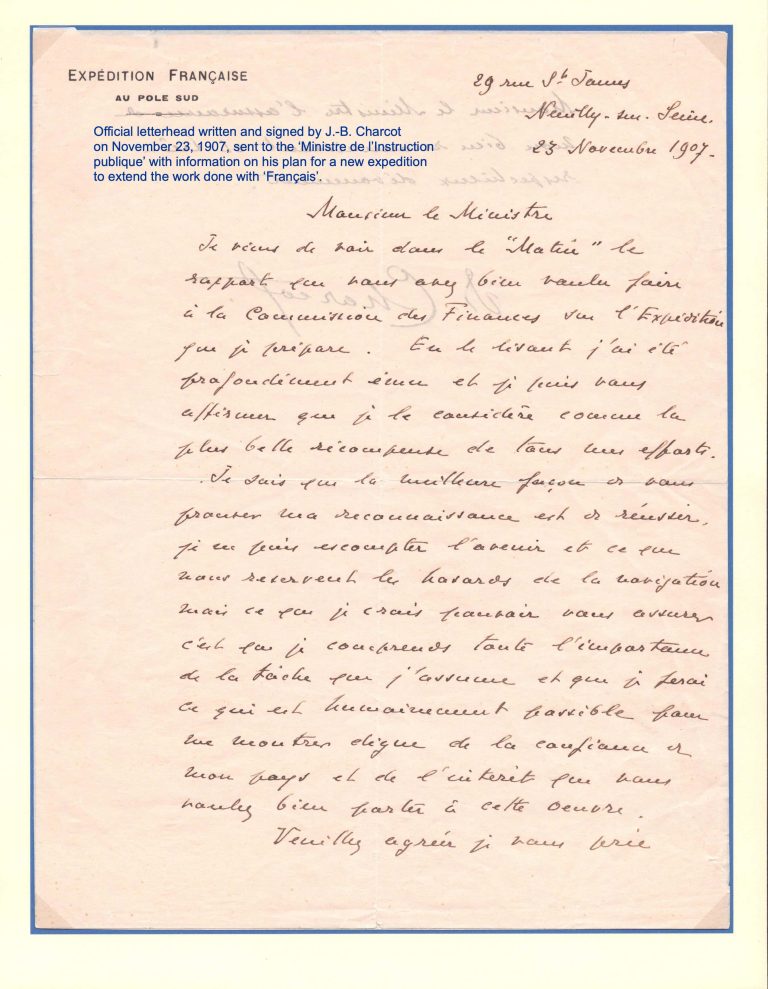 EXPÉDITION FRANÇAISE
AU POLE SUD
Official letterhead written and signed by J.-B. Charcot
on November 23, 1907, sent to the ‘Ministre de l’Instruction
publique’ with information on his plan for a new expedition
to extend the work done with ‘Français’.
29 rue St James
Neuilly-sur-Seine.
23 Novembre 1907-
Monsieur le Ministre
Je viens de voir dans le "Matin" le
rapport que vous avez bien voulu faire
à la Commission des Finances sur l'Expédition
que je prépare. En le lisant j'ai été
profondément ému et je puis vous
affirmer que je le considère comme la
plus belle récompense de tous mes efforts.
Je sais que la meilleure façon de vous
prouver ma reconnaissance est de réussir,
je ne puis escompter l'avenir et ce que
nous reservent les hasards de la navigation
mais ce que je crois pouvoir vous assurer
c'est que je comprends toute l'importance
de la tâche que j'assume et que je ferai
ce qui est humainement possible pour
me montrer digne de la confiance de
mon pays et de l'intérêt que vous
voulez bien porter à cette oeuvre.
Veuillez agréer je vous prie